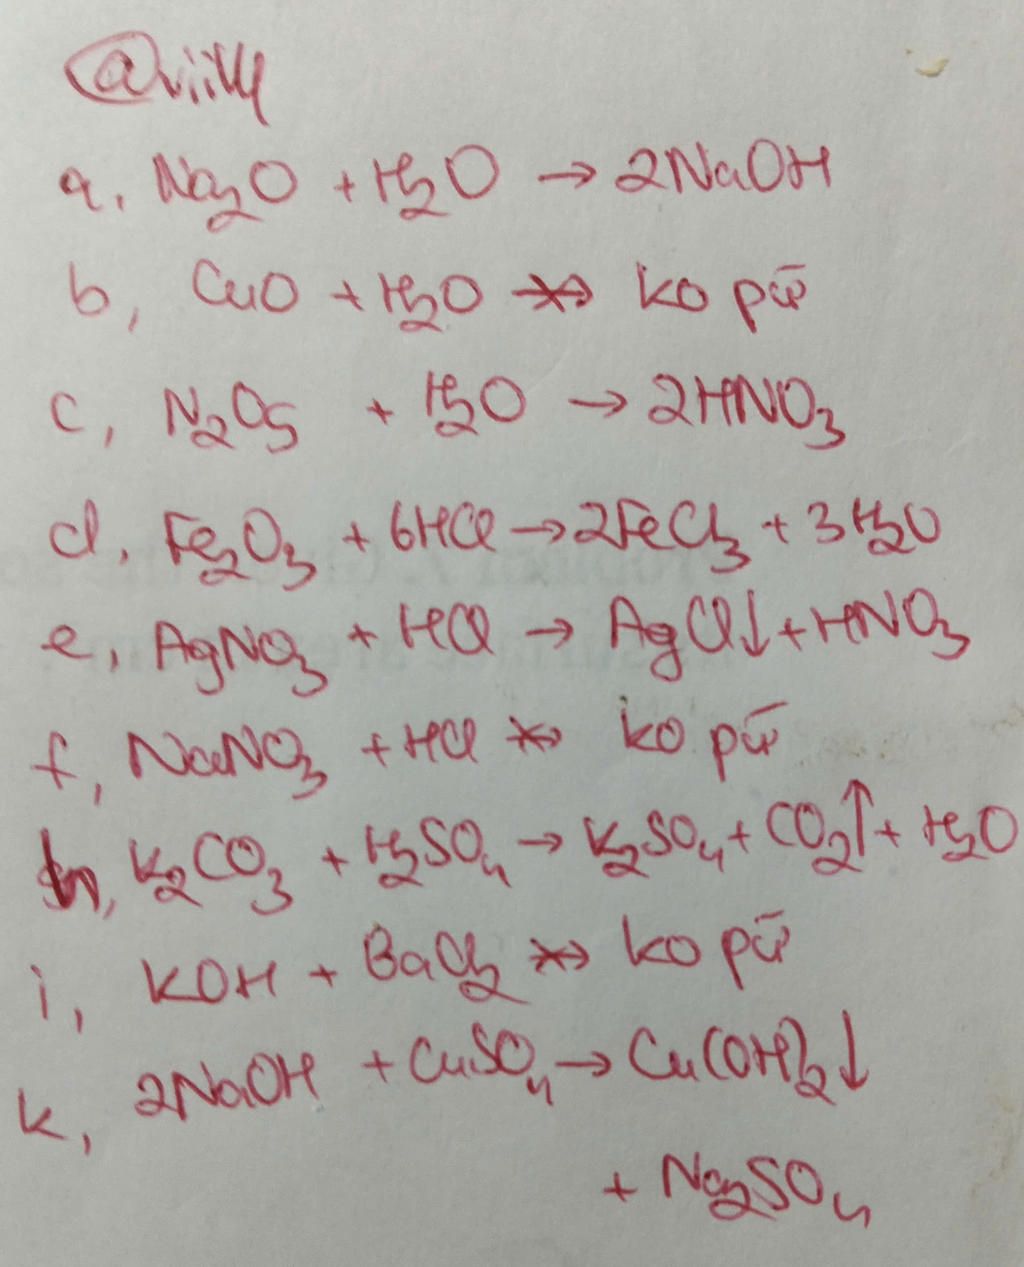 @viily
a, Na₂O + H₂O → 2NaOH
b, CuO + H₂O ↛ ko pứ
c, N₂O₅ + H₂O → 2HNO₃
d, Fe₂O₃ + 6HCl → 2FeCl₃ + 3H₂O
e, AgNO₃ + HCl → AgCl↓ + HNO₃
f, NaNO₃ + HCl ↛ ko pứ
h, K₂CO₃ + H₂SO₄ → K₂SO₄ + CO₂↑ + H₂O
i, KOH + BaCl₂ ↛ ko pứ
k, 2NaOH + CuSO₄ → Cu(OH)₂↓
+ Na₂SO₄